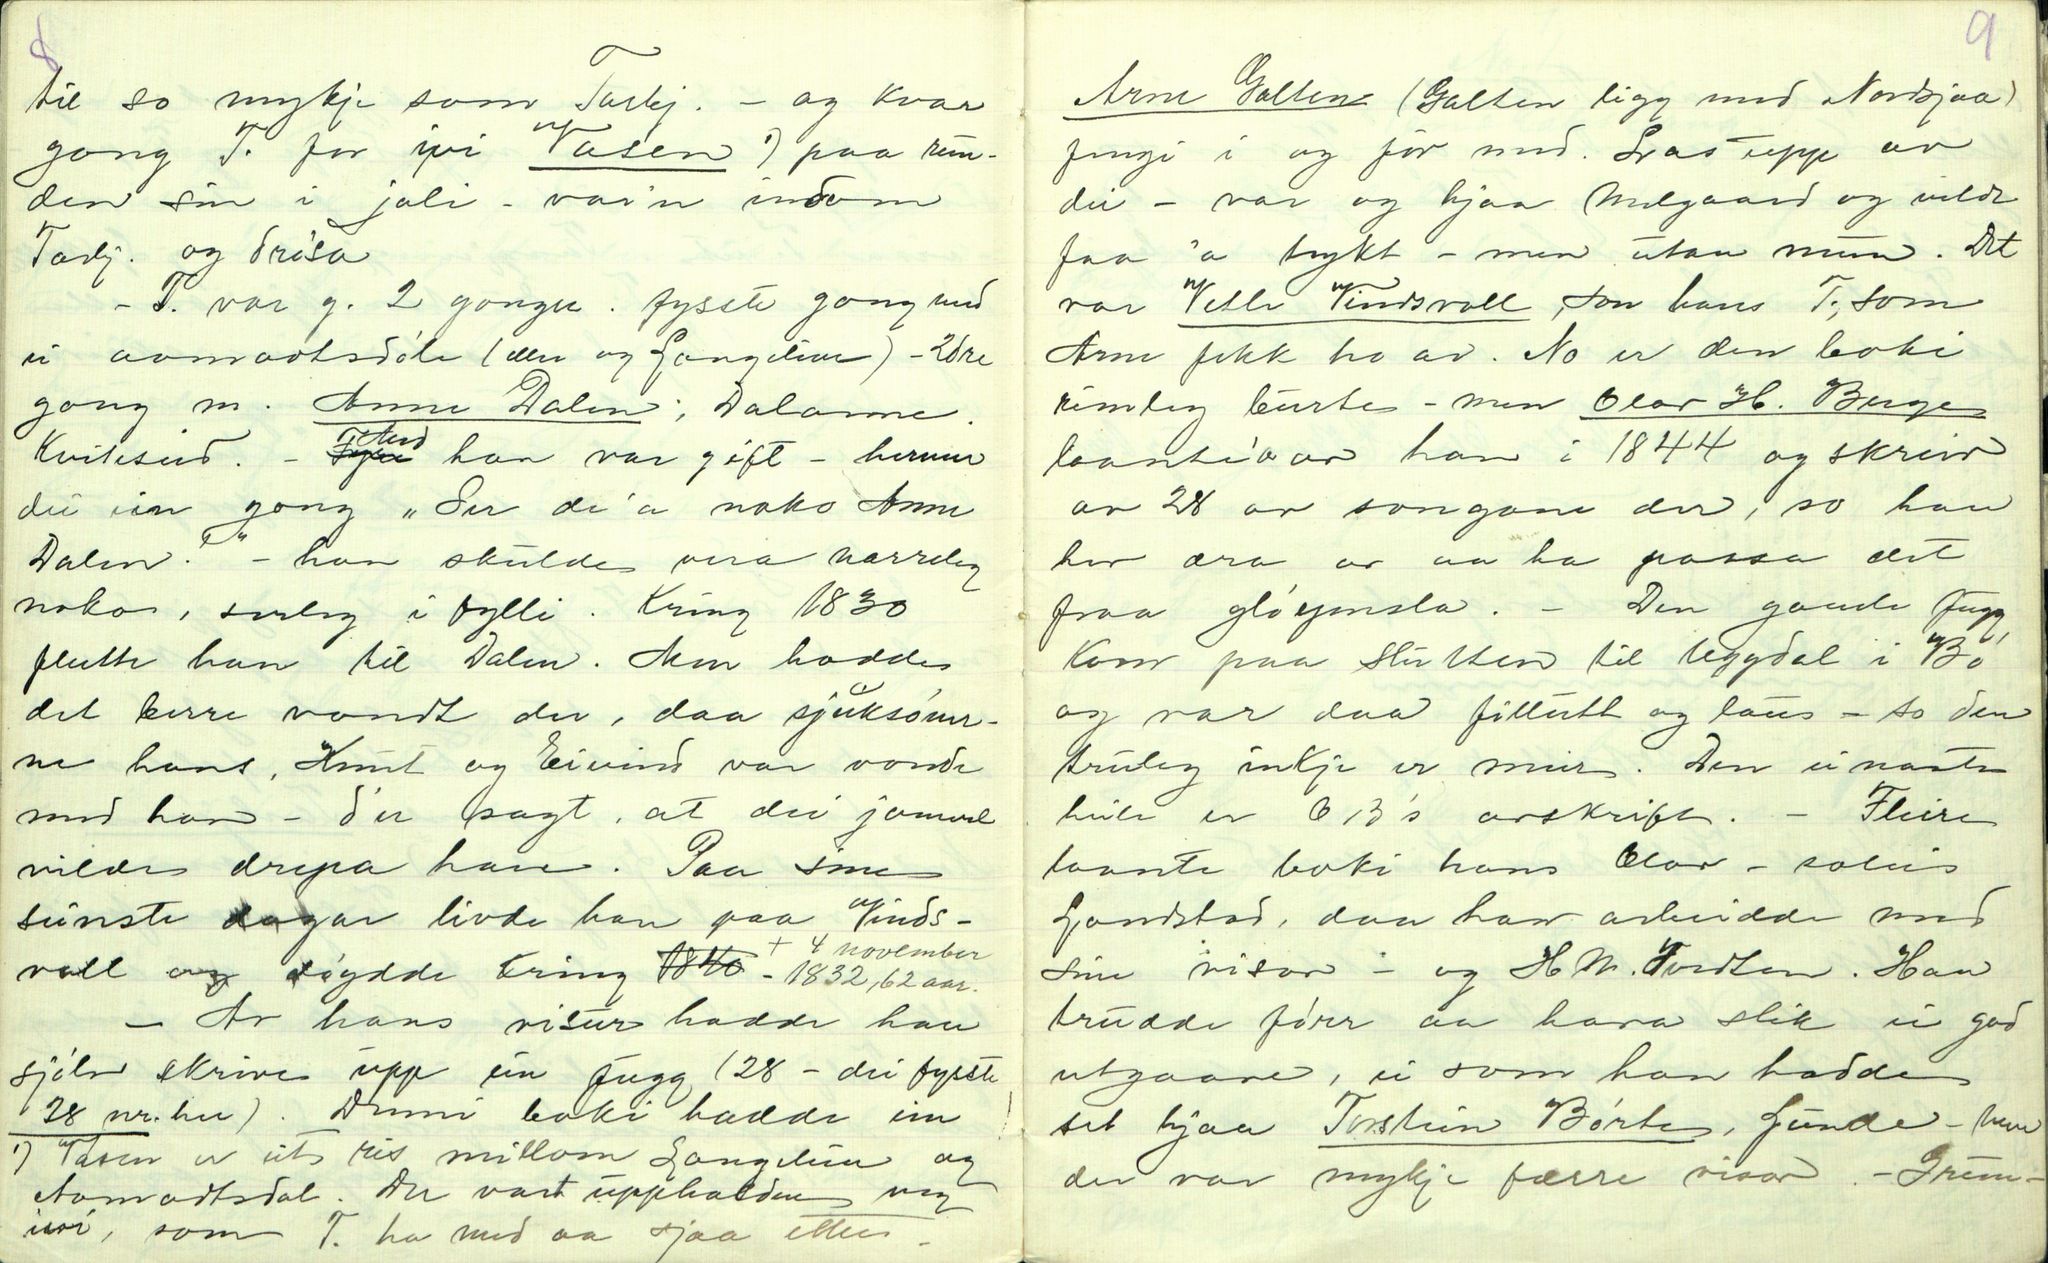 8
til so mykje som Torbj. - og kvar
gong T. for ivi Vasen ¹) paa run-
den sin i joli - var'n indom
Torbj. og drisa
- T. var g. 2 gonger. fysste gong med
ei aamotsdöle (ller og Gongelian) - 2dre
gong m. Anne Dalen, Dalanne.
Kviteseid. - Aud han var gift - herme
dei ein gong "Ser de'a noko Anne
Dalen?" - han skulde vera narreleg
noko, serleg i fylli. Kring 1830
flutte han til Dalen. Men hadde
det berre vondt der, daa sjuksöner-
ne hans, Knut og Eivind var vonde
med han - d'er sagt, at dei jamvel
vilde drepa han. Paa sine
seinste dagar livde han paa Vinds-
voll og döydde kring 1840 - † 4 november 1832, 62 aar.
- Av hans visur hadde han
sjölv skrive upp ein fugg (28 - dei fysste
28 nr. her). Denni boki hadde ein
¹) Vasen er eit res millom Gongelian og
Aamodtsdal. Der vart uppholden veg
ivi, som T. ha med aa sjaa etter.
9
Arne Galten (Galten ligg med Nordsjaa)
fengi i ogför med. Las upp av
dei - var og hjaa Melgaard og vilde
faa 'o trykt - men utan mun. Det
var Vetle Vindsvoll, son hans T, som
Arne fekk ho av. No er den boki
rimeleg burte - men Olav H. Berge
laante'o av han i 1844 og skreiv
av 28 av songane der, so han
her æra av aa ha passa det
fraa glöymsla. - Den gamle fugg
kom paa slutten til Uggdal i Bö
og var daa fillutt og laus - so den
truleg inkje er meir. Den einaste
heile er O B's avskrift. - Fleire
laante boki hans Olav - soleis
Landstad, daa han arbeidde med
sine visor - og H M. Tvedten. Han
trudde förr aa hava slik ei god
utgaave, ei som han hadde
set hjaa Torstein Börte, Lunde - men
der var mykje færre visor. - Grun-